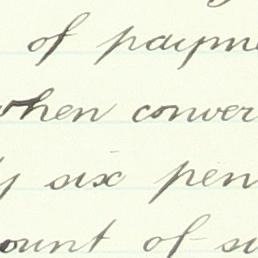 of payme
when conver
y six pen
ount of su